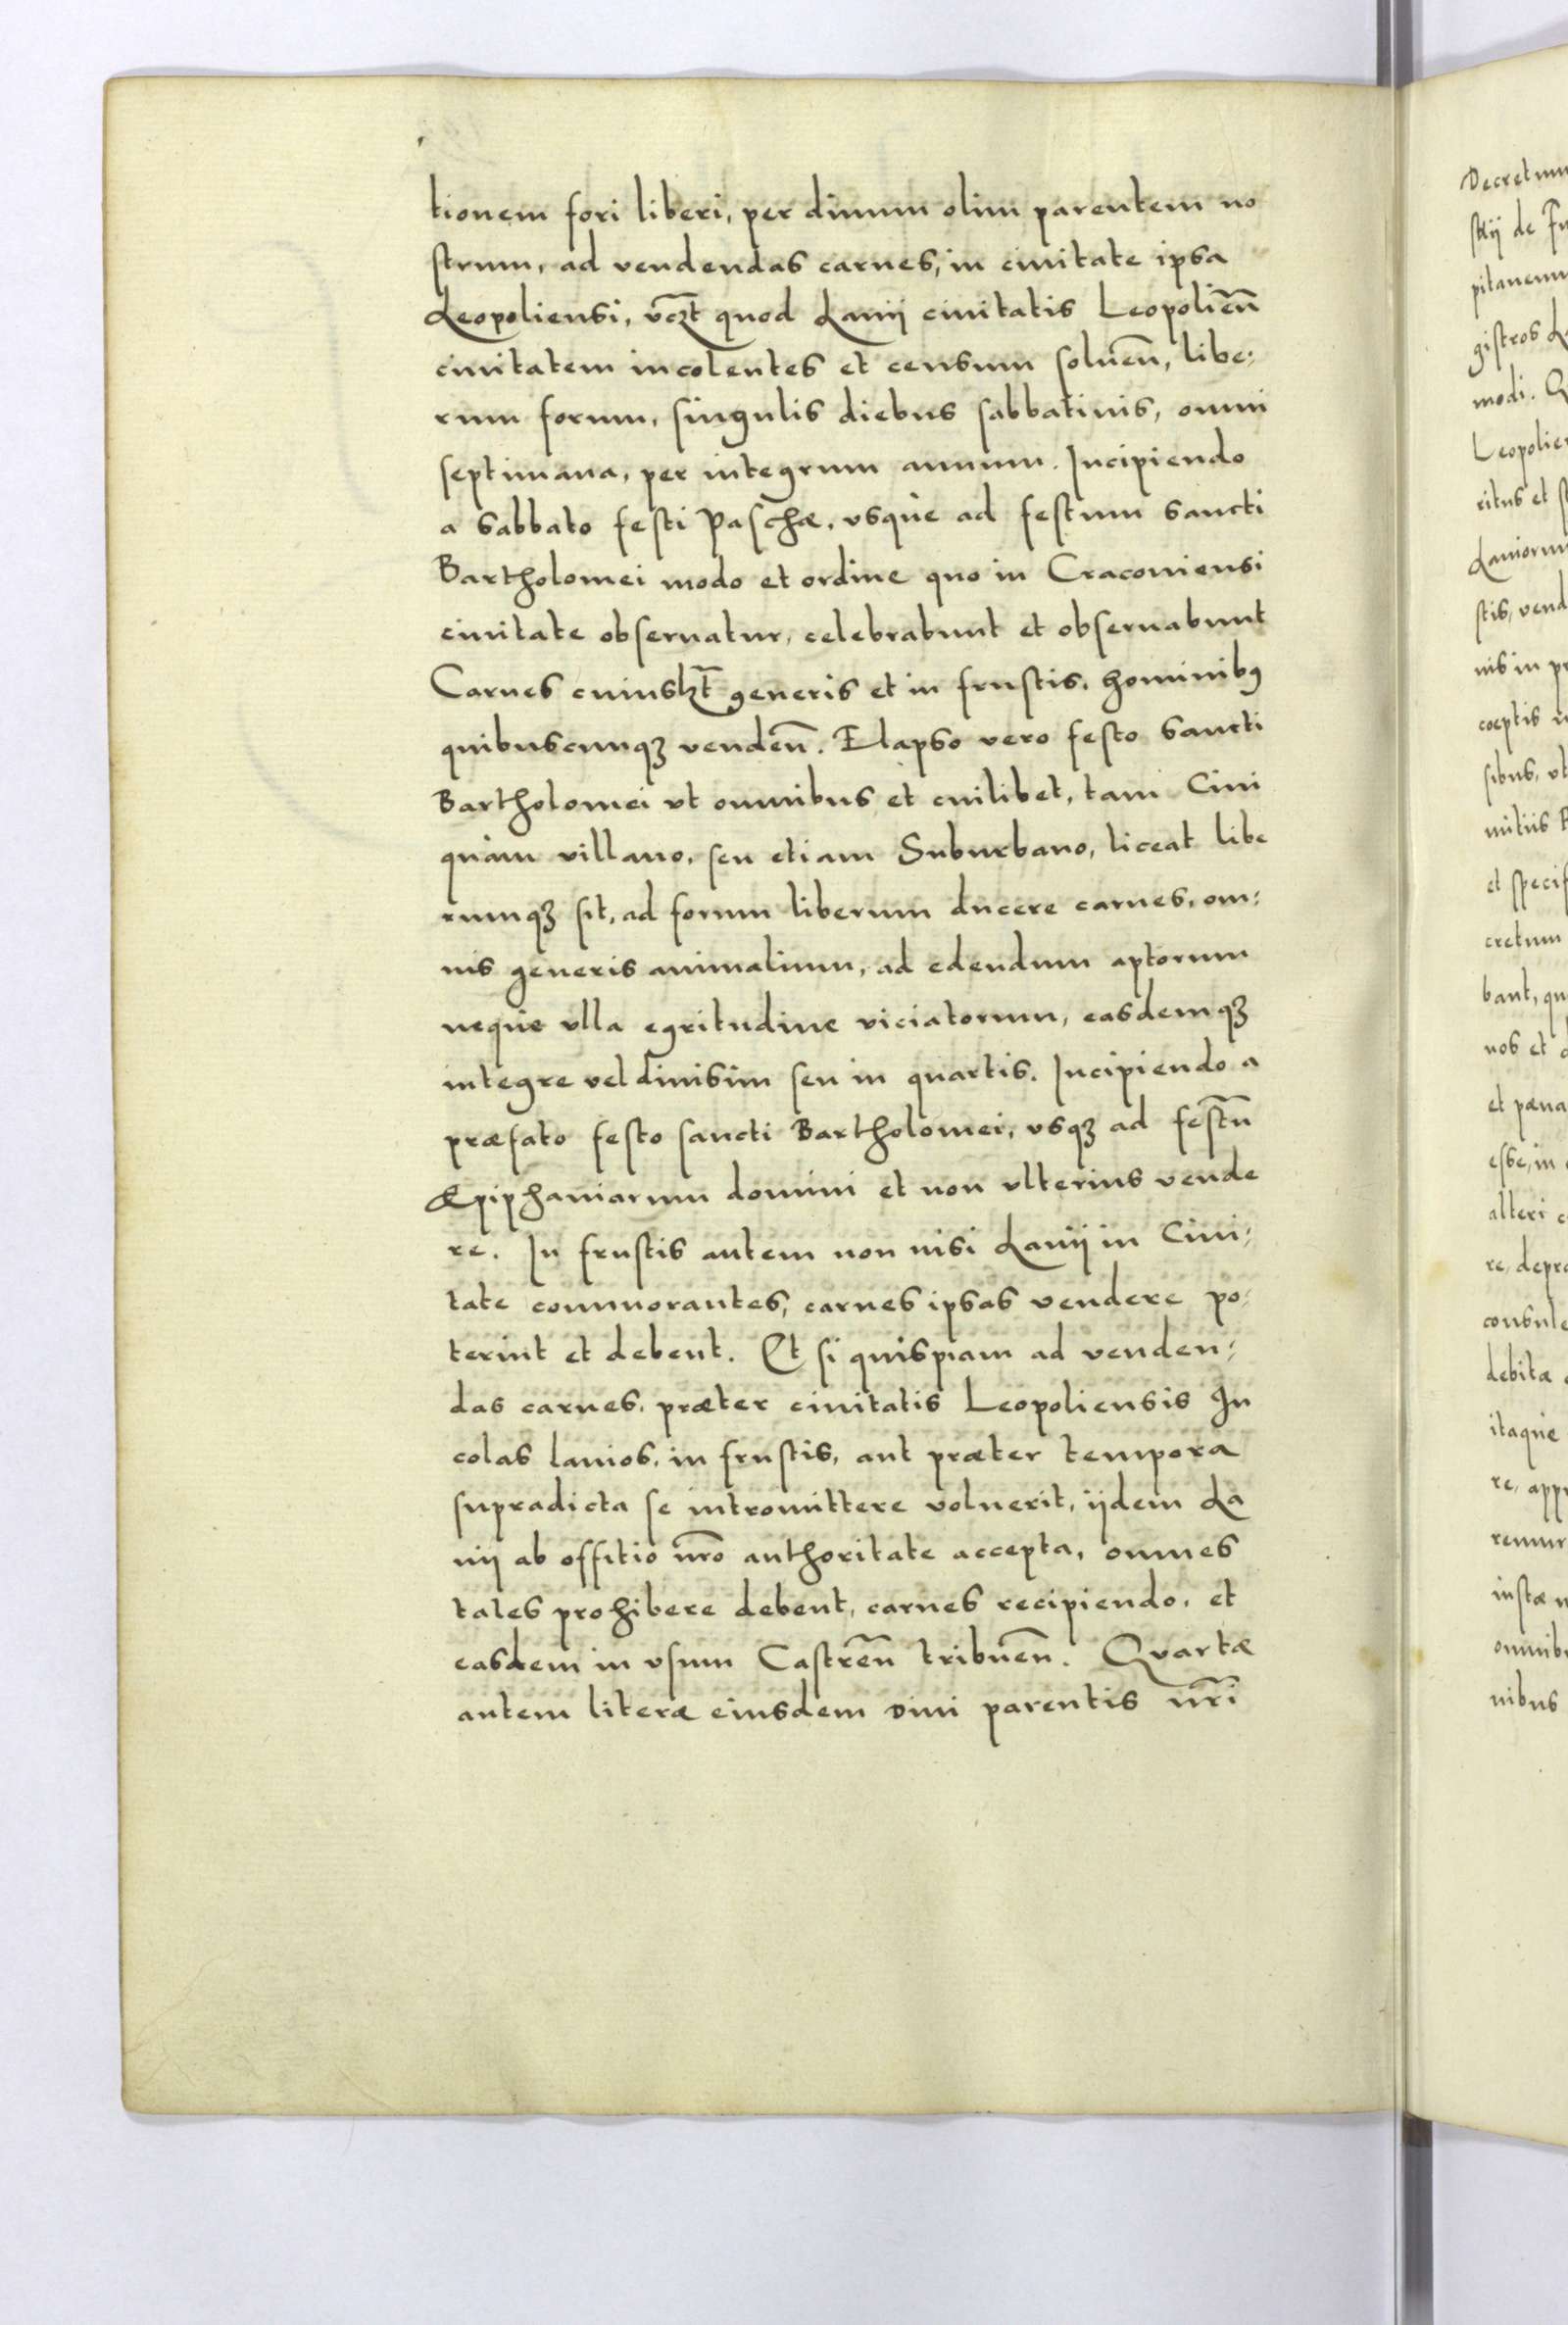 tionem fori liberi, per diuum olim parentem no
strum, ad vendendas carnes, in ciuitate ipsa
Leopoliensi, vczt quod Lanij ciuitatis Leopolień
ciuitatem incolentes et censum solueń, libe:
rum forum, singulis diebus sabbatinis, omni
septimana, per integrum annum. Incipiendo
a sabbato festi Paschæ, vsque ad festum sancti
Bartholomei modo et ordine quo in Cracouiensi
ciuitate obseruatur, celebrabunt et obseruabunt
Carnes cuiuslzt generis et in frustis, hominibꝰ
quibuscunqꝫ vendeń. Elapso vero festo sancti
Bartholomei vt omnibus et cuilibet, tam Ciui
quàm villano, seu etiam Suburbano, liceat libe
rumqꝫ sit, ad forum liberum ducere carnes, om:
nis generis animalium, ad edendum aptorum
neque vlla egritudine viciatorum, easdemqꝫ
integre vel diuisim seu in quartis. Incipiendo a
præfato festo sancti Bartholomei, vsqꝫ ad festū
Epiphaniarum domini et non vlterius vende
re. In frustis autem non nisi Lanij in Ciui:
tate commorantes, carnes ipsas vendere po:
terint et debent. Et si quispiam ad venden:
das carnes, præter ciuitatis Leopoliensis In
colas lanios, in frustis, aut præter tempora
supradicta se intromittere voluerit, ijdem La
nij ab offitio nr̃o authoritate accepta, omnes
tales prohibere debent, carnes recipiendo, et
easdem in vsum Castreń tribueń. Quartæ
autem literæ eiusdem Diui parentis nr̃i
Decretum
skij de
pitaneum
gistros
modi.
Leopolien
ritus et
Laniorum
stis, vend
nis in pr
coeptis
sibus, vt
mitiis
et specif
cretum
bant, qu
nos et
et pæna
esse, in
alteri
re, depra
consule
debitæ
itaque
re, appr
remur
iustæ
omnibu
nibus